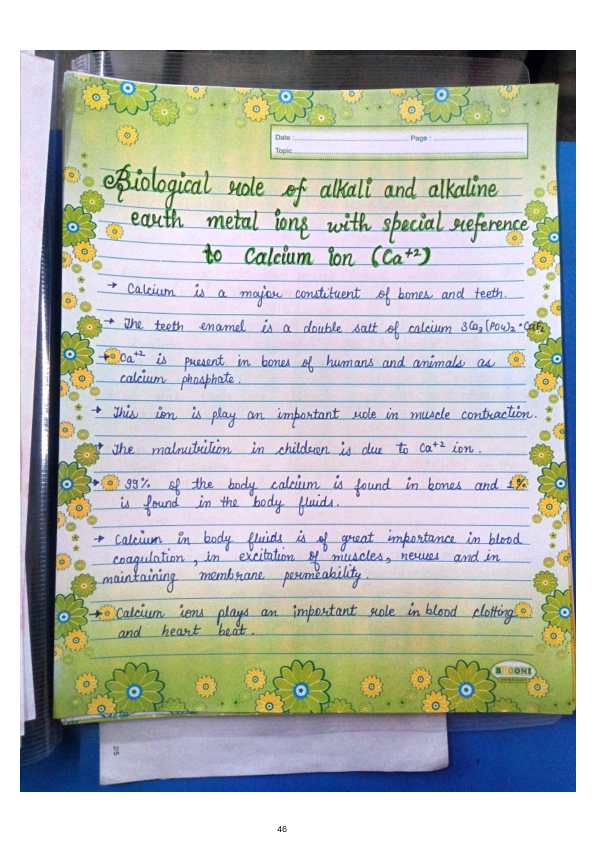 Date : Page :
Topic
Biological role of alkali and alkaline
earth metal ions with special reference
to Calcium ion (Ca+2)
→ Calcium is a major constituent of bones and teeth.
→ The teeth enamel is a double salt of calcium 3Ca3(PO4)2·CaF2
→ Ca+2 is present in bones of humans and animals as
calcium phosphate.
→ This ion is play an important role in muscle contraction.
→ The malnutrition in children is due to Ca+2 ion.
→ 99% of the body calcium is found in bones and 1%
is found in the body fluids.
→ Calcium in body fluids is of great importance in blood
coagulation, in excitation of muscles, nerves and in
maintaining membrane permeability.
→ Calcium ions plays an important role in blood clotting
and heart beat.
BHOOMI
2/5
46